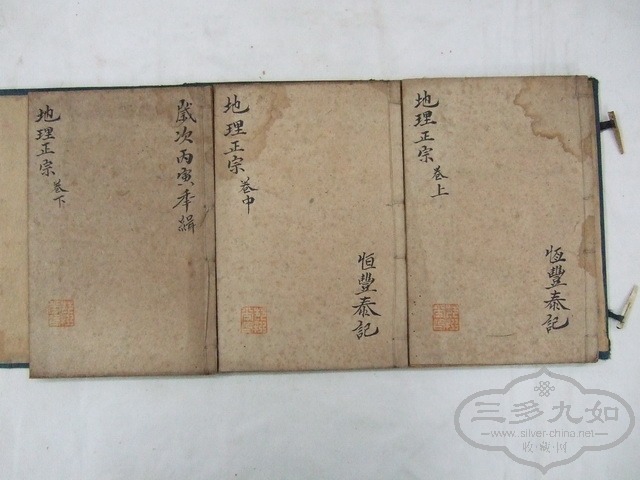 地理正宗 卷上
恆豐泰記
地理正宗 卷中
恒豐泰記
歲次丙寅年緝
地理正宗 卷下
三多九如
www.silver-china.net
收·藏·网